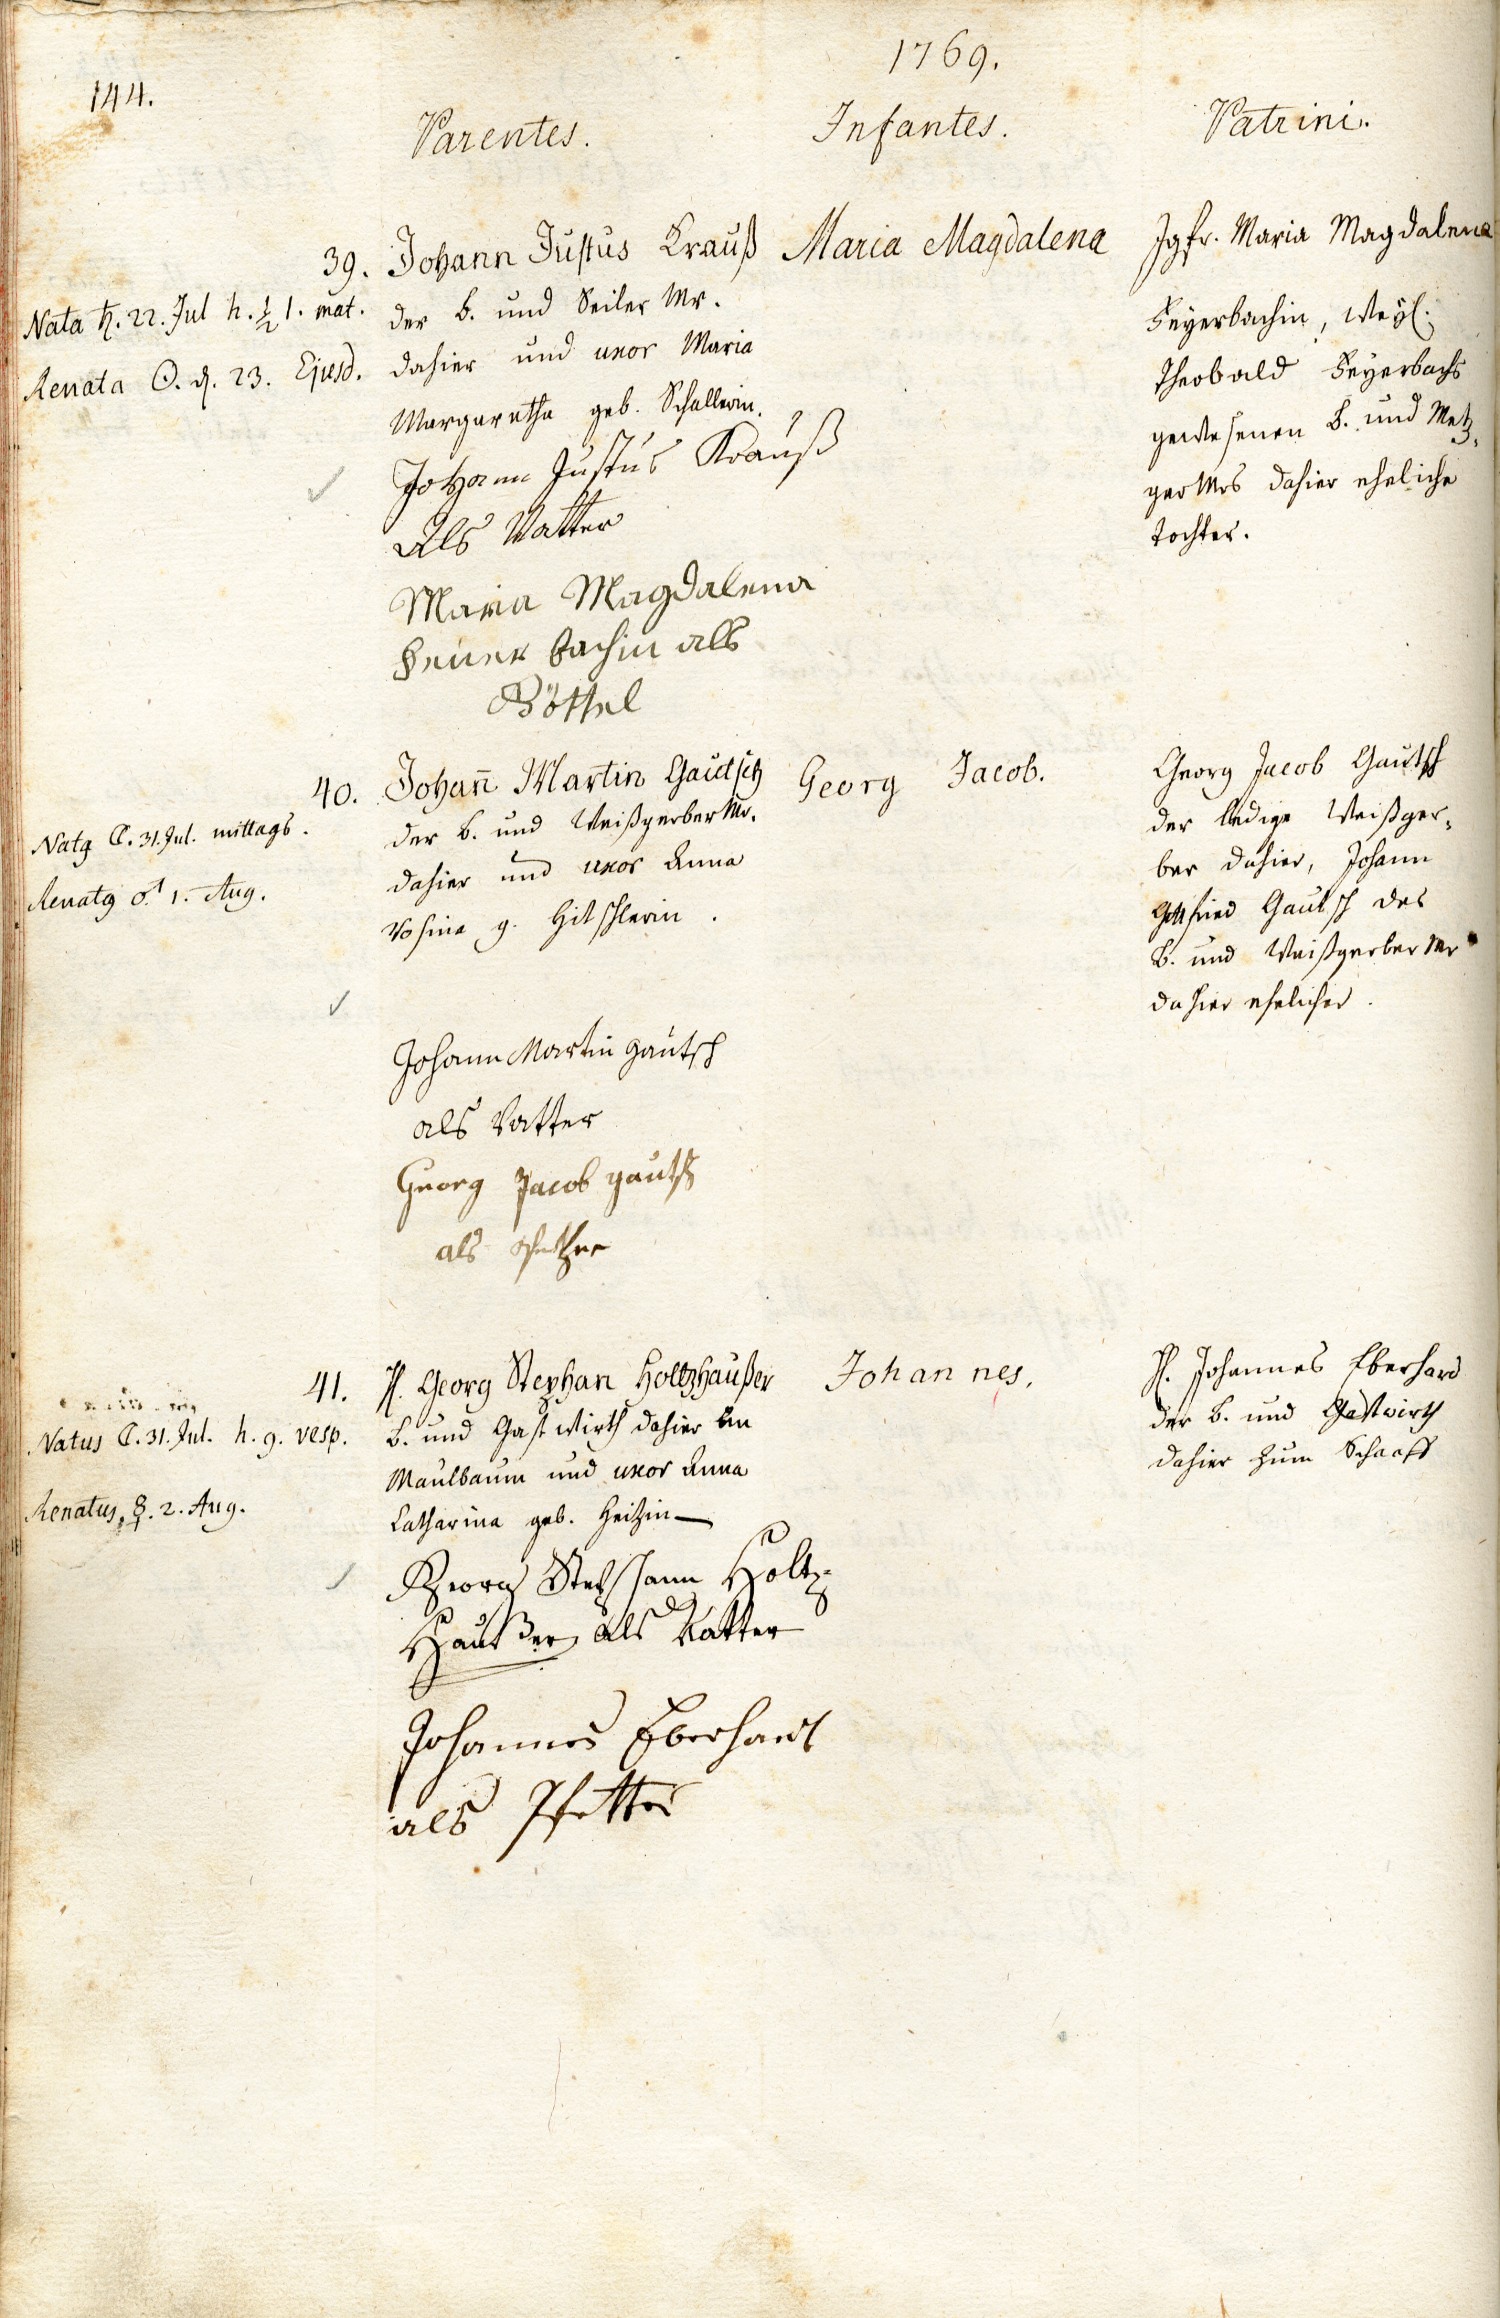 1769.
144.
Parentes.
Infantes.
Patrini.
39.
Nata ♄. 22. Jul h. ½ 1. mat.
Renata ☉. d. 23. Ejusd.
Johann Justus Krauß
der b. und Seiler Mr.
dahier und uxor Maria
Margaretha geb. Schallerin.
Johann Justus Krauß
Als Vatter
Maria Magdalena
feuer bachin als
Göttel
Maria Magdalena
Jgfr. Maria Magdalena
Feyerbachin, weyl.
Theobald Feyerbachs
gewesenen b. und Metz,
ger Mrs dahier eheliche
Tochter.
40.
Natq ☾. 31. Jul. mittags.
Renatq ♂. 1. Aug.
Johan̄ Martin Gautsch
der b. und Weißgerber Mr.
dahier und uxor Anna
Rosina g. Hitschlerin.
Johann Martin gautsch
als Vatter
Georg Jacob gautsch
als
Georg Jacob.
Georg Jacob Gautsch
der ledige Weißger,
ber dahier, Johann
Gottfried Gautsch des
b. und Weißgerber Mr
dahier ehelicher.
41.
Natus ☾. 31. Jul. h. 9. vesp.
Renatus, ☿. 2. Aug.
H. Georg Stephan Holtzhaußer
b. und Gastwirth dahier im
Maulbaum und uxor Anna
Catharina geb. Heitzin
Georg Stephann Holtz-
Haußer als Vatter
Johannes Eberhardt
als Pfetter
Johannes.
H. Johannes Eberhard
der b. und Gastwirth
dahier zum Schaaff